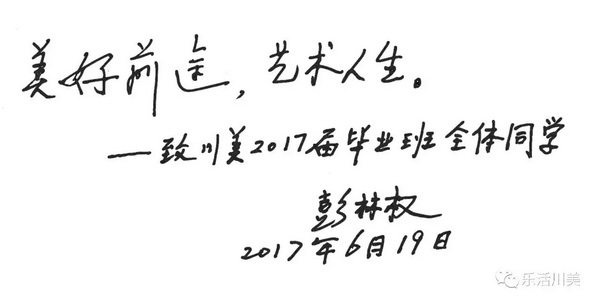 美好前途，艺术人生。
——致川美2017届毕业班全体同学
彭林权
2017年6月19日
乐活川美